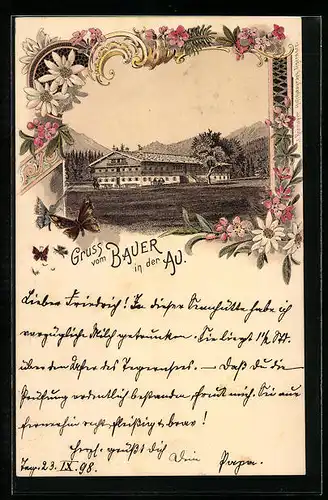 Gruss
vom BAUER
in der AU.
Lieber Friedrich! In dieser Sennhütte habe ich
vorzügliche Milch getrunken. Sie liegt 1½ St.
über dem Ufer des Tegernsees. — Daß du die
Prüfung ordentlich bestanden, freut mich. Sei nur
fernerhin recht fleißig & brav!
Herzl. grüßt dich
Dein Papa.
Teg. 23. IX. 98.